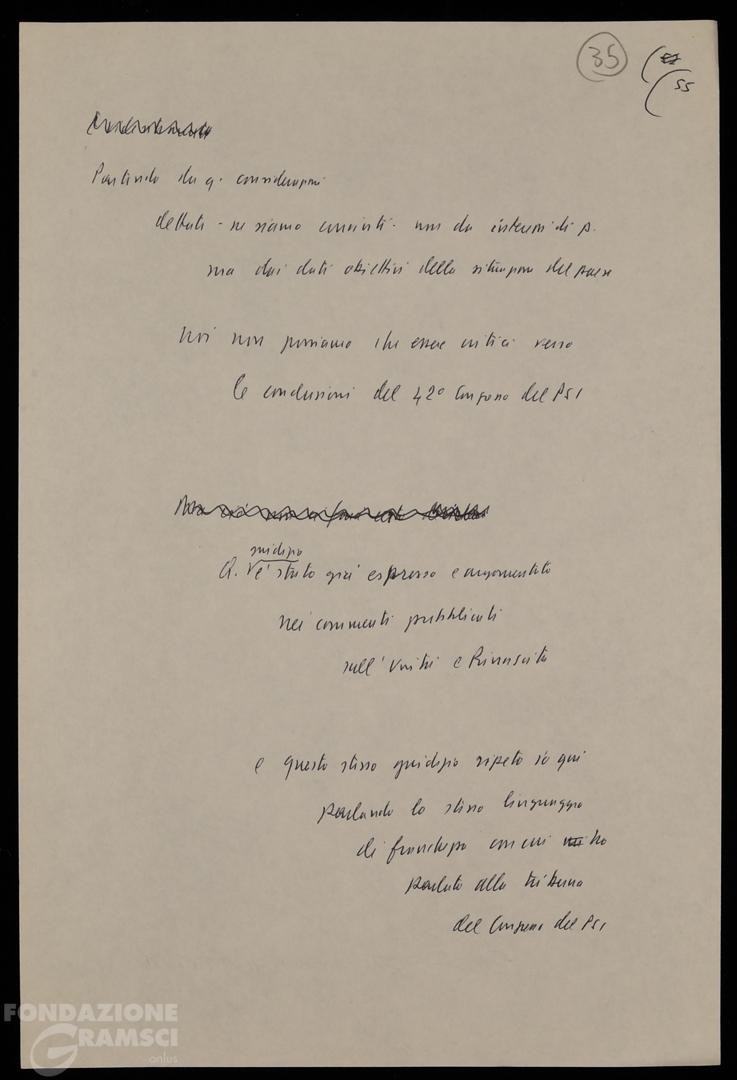 35
55
Partendo da q. considerazioni
dettate - ne siamo convinti - non da interessi di p.
ma dai dati obiettivi della situazione del paese
Noi non possiamo che essere critici verso
le conclusioni del 42º Congresso del PSI
giudizio
Q. è stato già espresso e argomentato
nei commenti pubblicati
sull'Unità e Rinascita
e questo stesso giudizio ripeterò qui
parlando lo stesso linguaggio
di franchezza con cui ho
parlato alla tribuna
del Congresso del PSI
FONDAZIONE
GRAMSCI
onlus